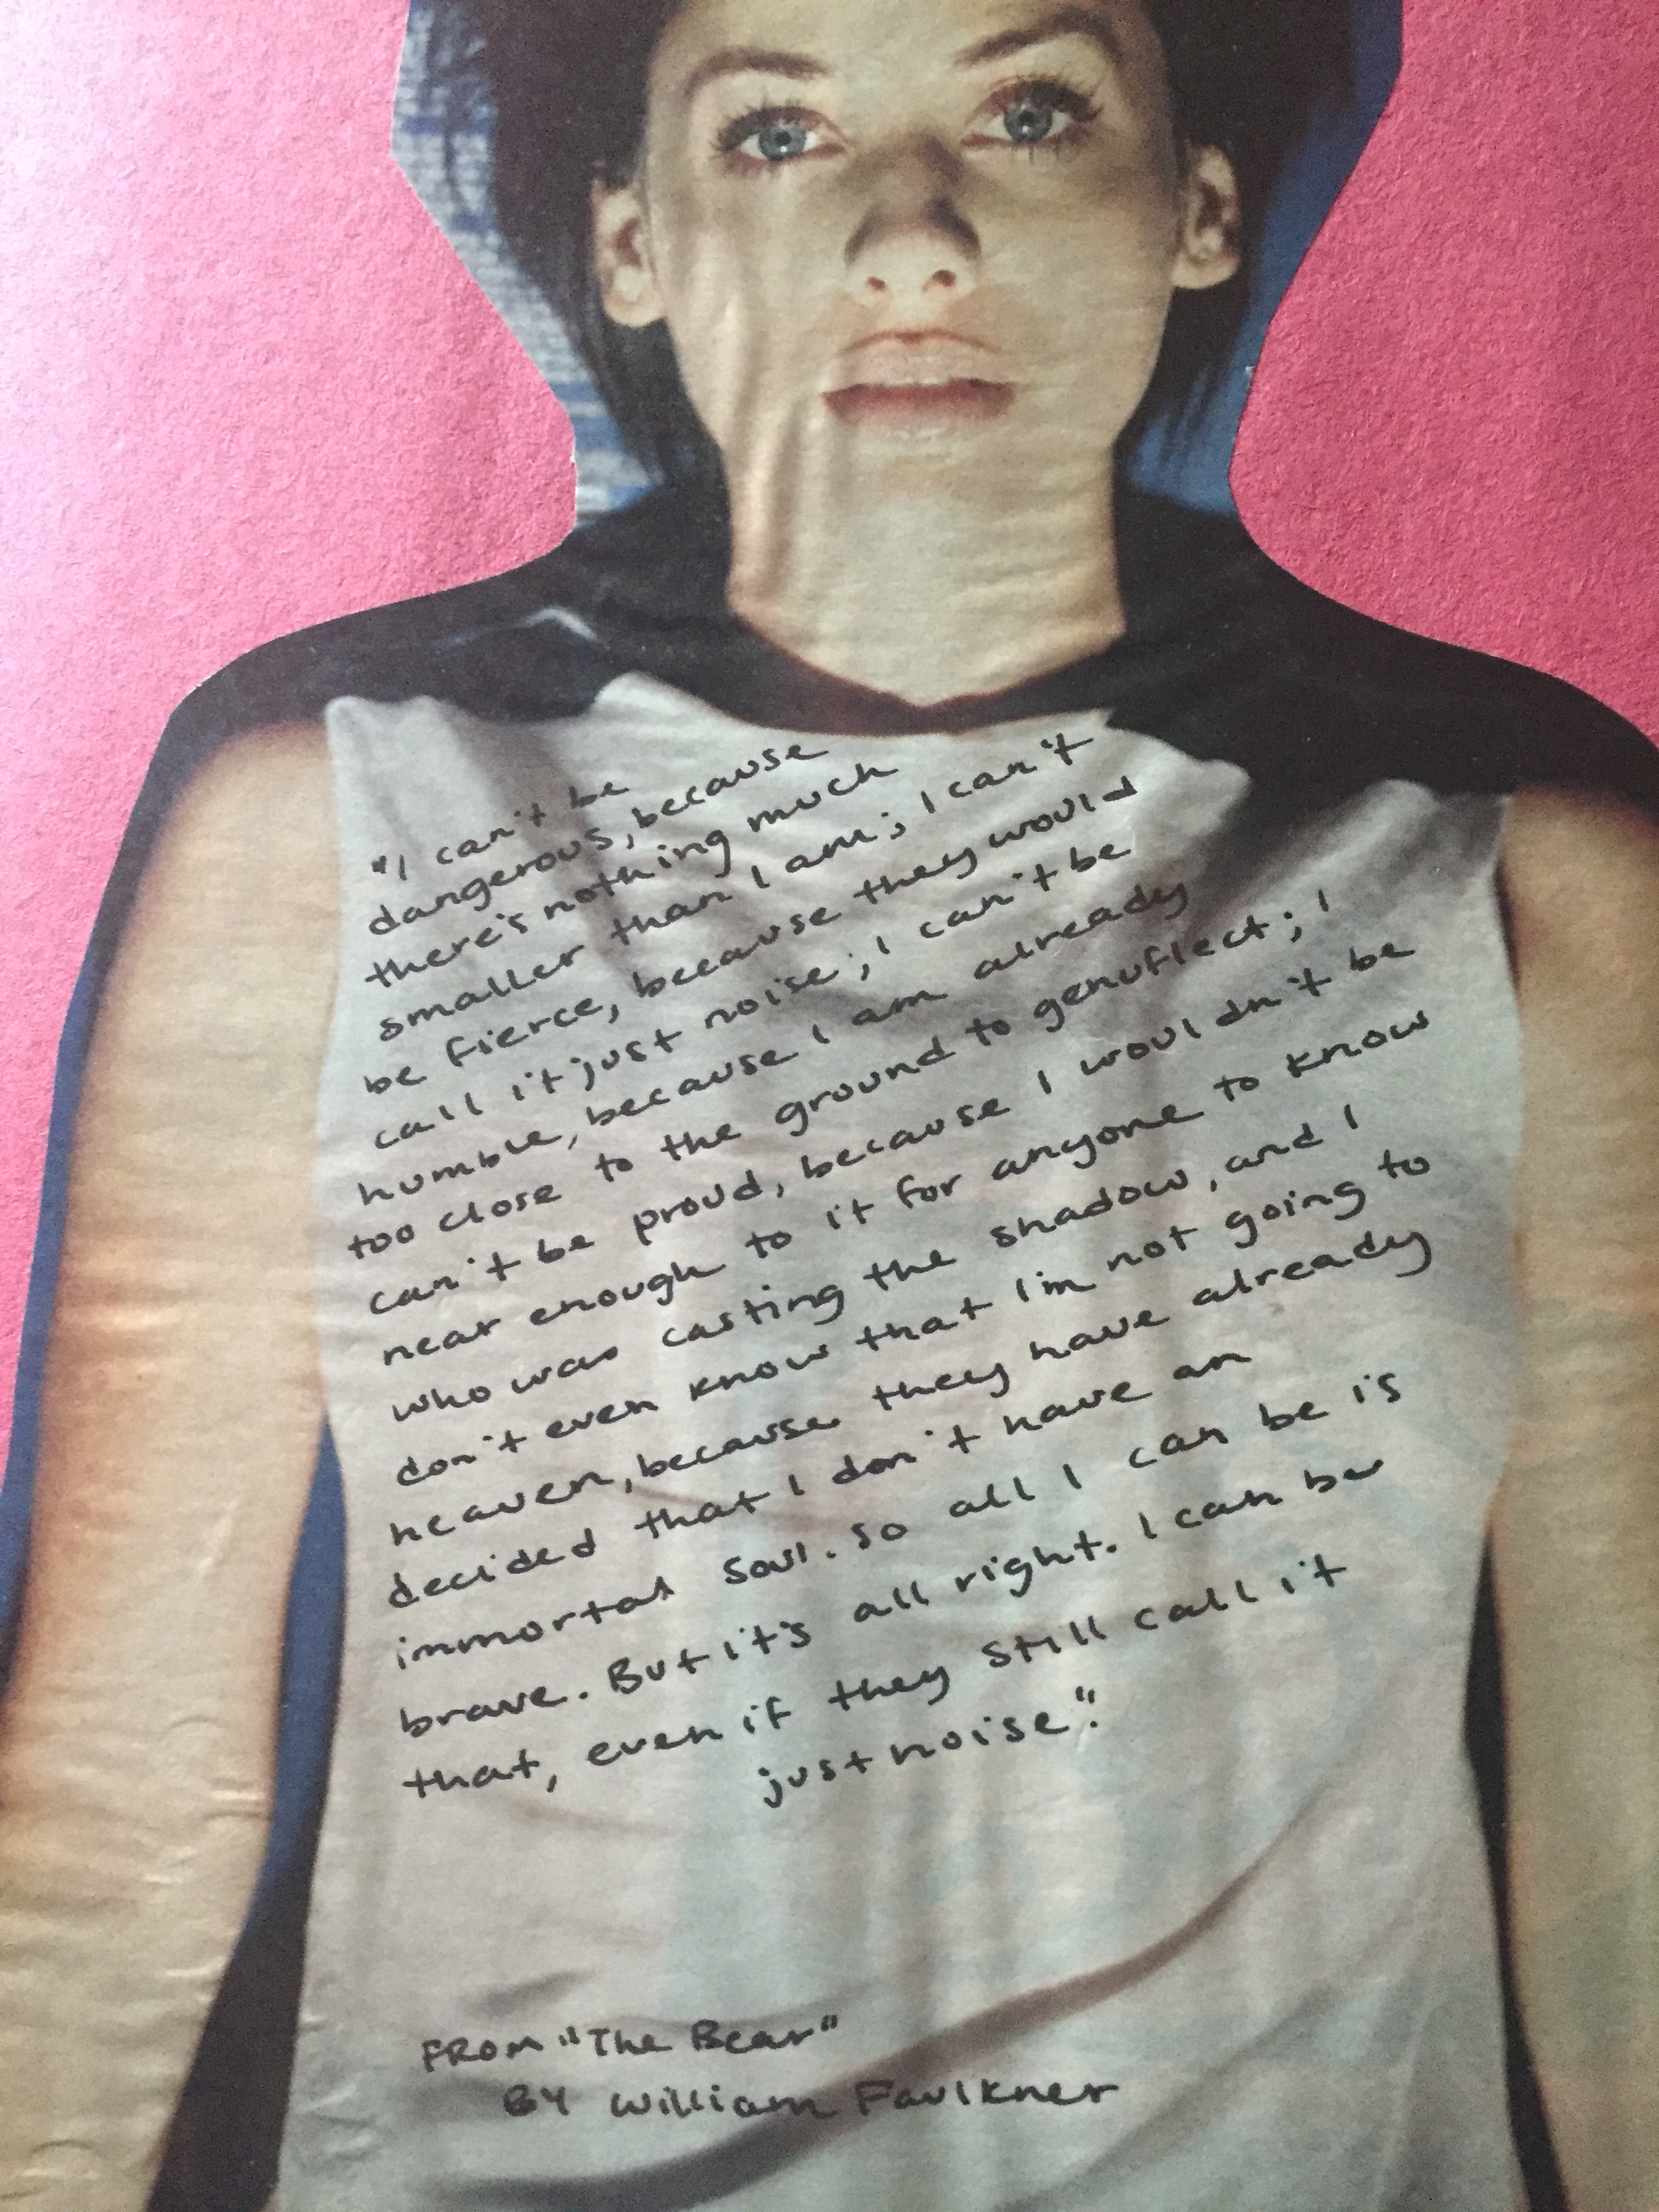 "I can't be
dangerous, because
there's nothing much
smaller than I am; I can't
be fierce, because they would
call it just noise; I can't be
humble, because I am already
too close to the ground to genuflect; I
can't be proud, because I wouldn't be
near enough to it for anyone to know
who was casting the shadow, and I
don't even know that I'm not going to
heaven, because they have already
decided that I don't have an
immortal soul. So all I can be is
brave. But it's all right. I can be
that, even if they still call it
just noise."
FROM "The Bear"
BY William Faulkner